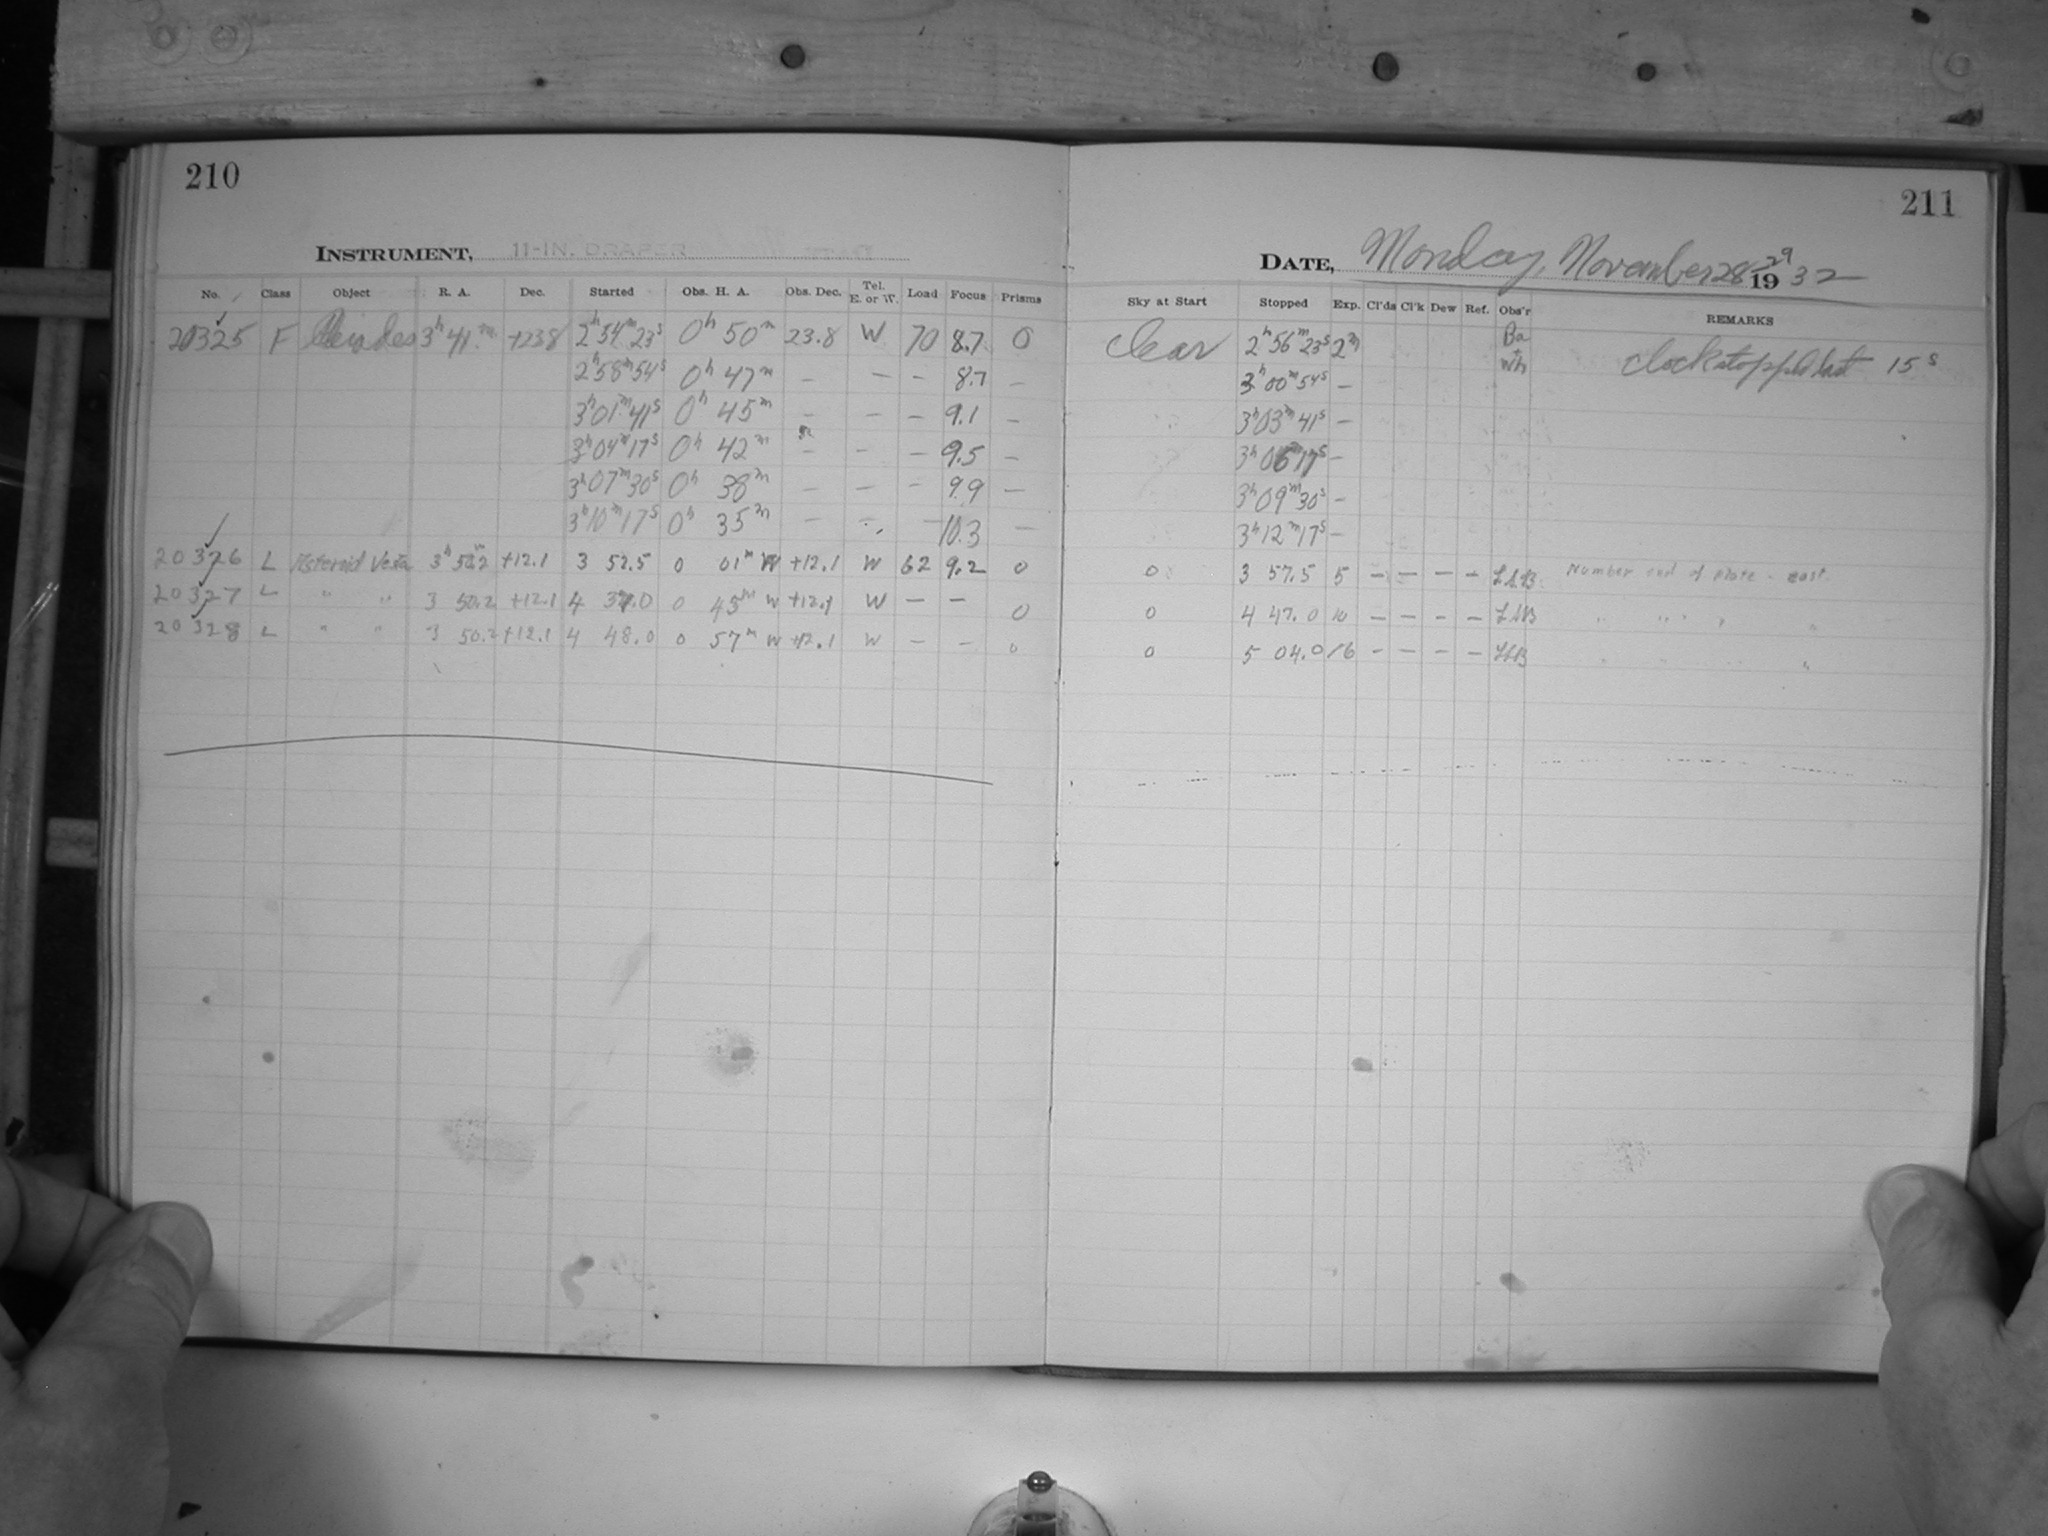 210
INSTRUMENT, 11-IN. DRAPER
No. Class Object R. A. Dec. Started Obs. H. A. Obs. Dec. Tel. E. or W. Load Focus Prisms
20325 F Pleiades 3h 41m +23.8 2h54m23s 0h 50m 23.8 W 70 8.7 0
2h58m54s 0h 47m — — — 8.7 —
3h01m41s 0h 45m — — — 9.1 —
3h04m17s 0h 42m — — — 9.5 —
3h07m30s 0h 38m — — — 9.9 —
3h10m17s 0h 35m — — — 10.3 —
20326 L Asteroid Vesta 3h 50.2m +12.1 3 52.5 0 01m W +12.1 W 62 9.2 0
20327 L " " 3 50.2 +12.1 4 37.0 0 45m W +12.1 W — — 0
20328 L " " 3 50.2 +12.1 4 48.0 0 57m W +12.1 W — — 0
211
DATE, Monday, November 28-29 1932
Sky at Start Stopped Exp. Cl'ds Cl'k Dew Ref. Obs'r REMARKS
Clear 2h56m23s 2m Ba
Wh clock stopped last 15s
3h00m54s —
3h03m41s —
3h06m17s —
3h09m30s —
3h12m17s —
0 3 57.5 5 — — — — Number end of plate - east.
0 4 47.0 10 — — — — " " " " "
0 5 04.0 16 — — — — " "